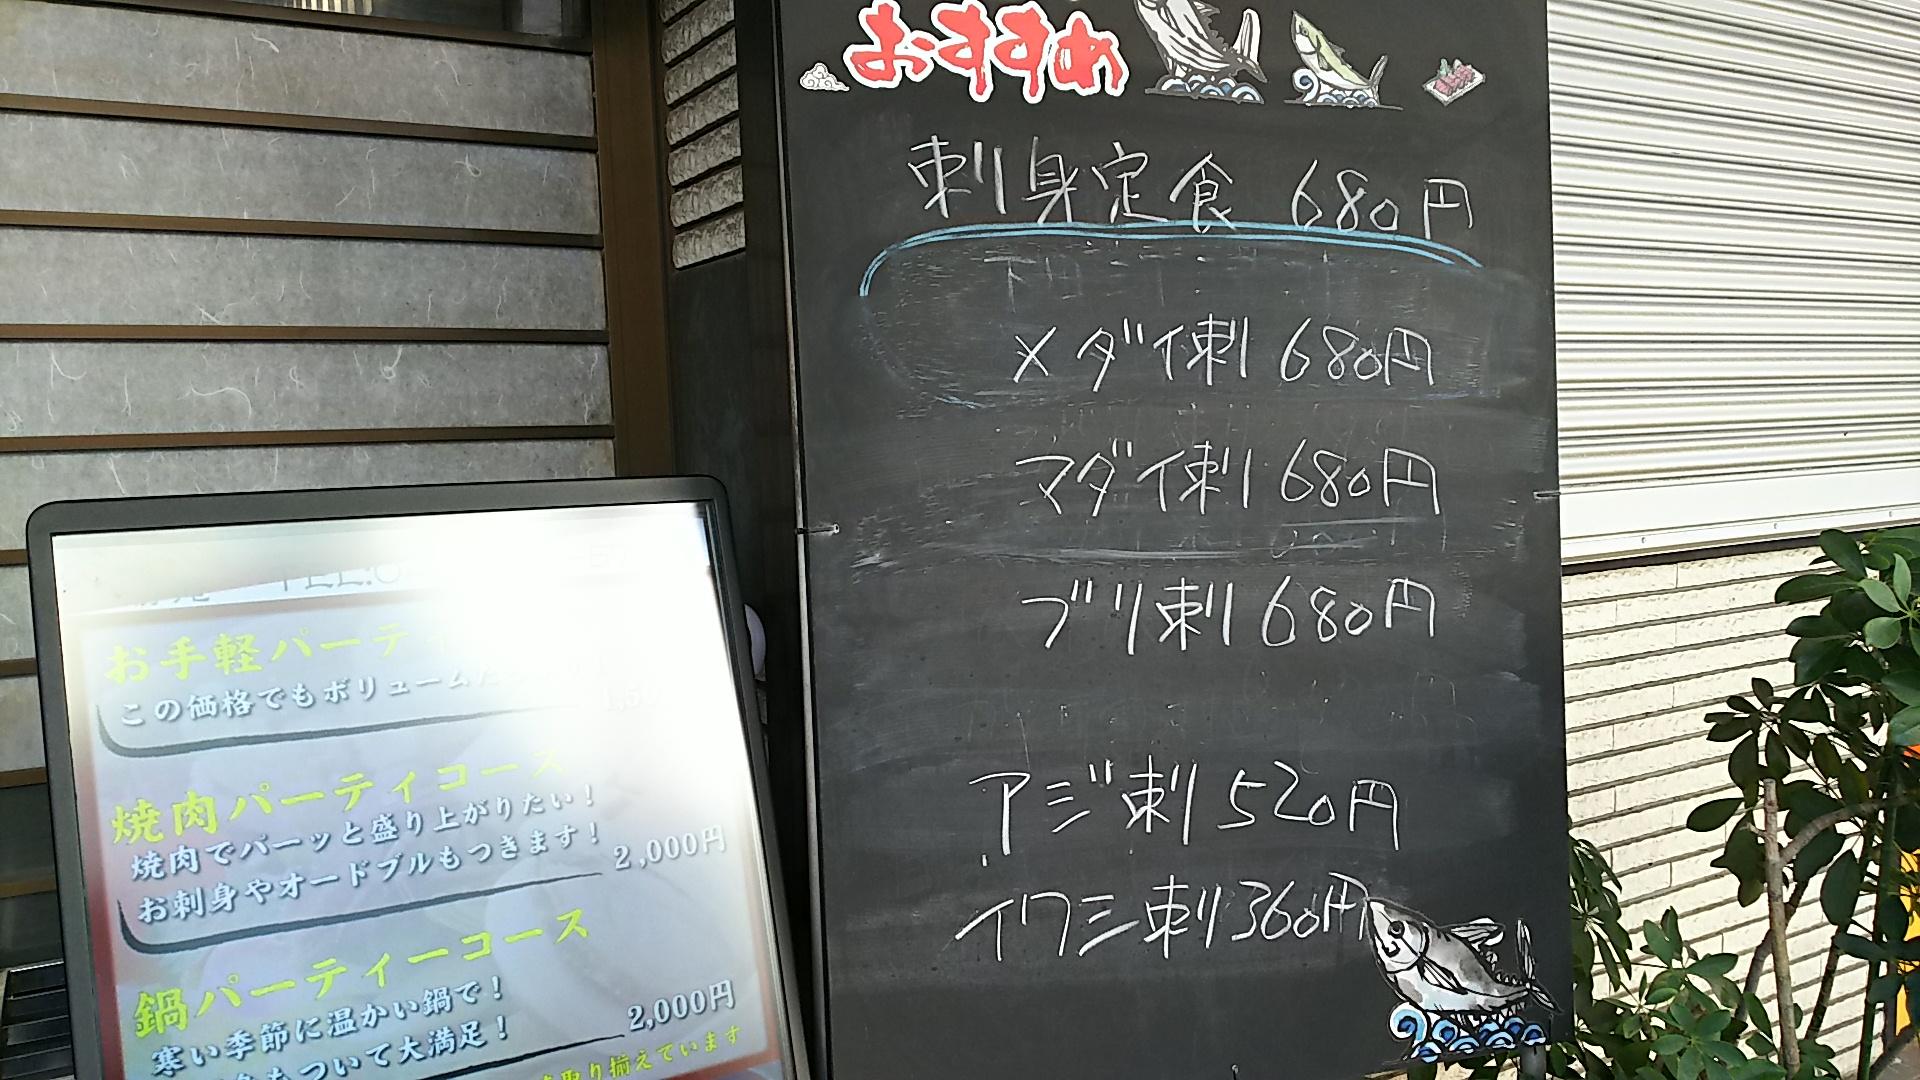 おすすめ
刺身定食 680円
メダイ刺 680円
マダイ刺 680円
ブリ刺 680円
アジ刺 520円
イワシ刺 360円
お手軽パーテ
この価格でもボリューム
焼肉パーティコース
焼肉でパーッと盛り上がりたい！
お刺身やオードブルもつきます！ 2,000円
鍋パーティーコース
寒い季節に温かい鍋で！
もついて大満足！ 2,000円
取り揃えています